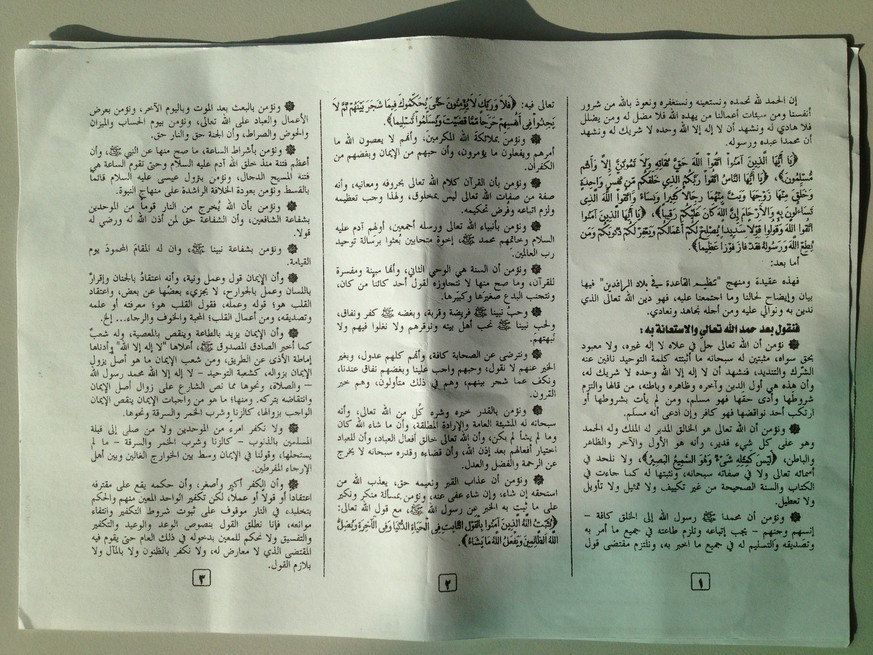 إن الحمد لله نحمده ونستعينه ونستغفره ونعوذ بالله من شرور
أنفسنا ومن سيئات أعمالنا من يهده الله فلا مضل له ومن يضلل
فلا هادي له ونشهد أن لا إله إلا الله وحده لا شريك له ونشهد
أن محمدا عبده ورسوله.
﴿يَا أَيُّهَا الَّذِينَ آمَنُوا اتَّقُوا اللَّهَ حَقَّ تُقَاتِهِ وَلَا تَمُوتُنَّ إِلَّا وَأَنتُم
مُّسْلِمُونَ﴾، ﴿يَا أَيُّهَا النَّاسُ اتَّقُوا رَبَّكُمُ الَّذِي خَلَقَكُم مِّن نَّفْسٍ وَاحِدَةٍ
وَخَلَقَ مِنْهَا زَوْجَهَا وَبَثَّ مِنْهُمَا رِجَالًا كَثِيرًا وَنِسَاءً وَاتَّقُوا اللَّهَ الَّذِي
تَسَاءَلُونَ بِهِ وَالْأَرْحَامَ إِنَّ اللَّهَ كَانَ عَلَيْكُمْ رَقِيبًا﴾، ﴿يَا أَيُّهَا الَّذِينَ آمَنُوا
اتَّقُوا اللَّهَ وَقُولُوا قَوْلًا سَدِيدًا يُصْلِحْ لَكُمْ أَعْمَالَكُمْ وَيَغْفِرْ لَكُمْ ذُنُوبَكُمْ وَمَن
يُطِعِ اللَّهَ وَرَسُولَهُ فَقَدْ فَازَ فَوْزًا عَظِيمًا﴾.
أما بعد:
فهذه عقيدة ومنهج "تنظيم القاعدة في بلاد الرافدين" فيها
بيان وإيضاح لحالنا وما اجتمعنا عليه، فهو دين الله تعالى الذي
ندين به ونوالي عليه ومن أجله نجاهد ونعادي.
فنقول بعد حمد الله تعالى والاستعانة به :
نؤمن أن الله تعالى جل في علاه لا إله غيره، ولا معبود
بحق سواه، مثبتين له سبحانه ما أثبتته كلمة التوحيد نافين عنه
الشرك والتنديد، فنشهد أن لا إله إلا الله وحده لا شريك له،
وأن هذه هي أول الدين وآخره وظاهره وباطنه، من قالها والتزم
شروطها وأدى حقها فهو مسلم، ومن لم يأت بشروطها أو
ارتكب أحد نواقضها فهو كافر وإن ادعى أنه مسلم.
ونؤمن أن الله تعالى هو الخالق المدبر له الملك وله الحمد
وهو على كل شيء قدير، وأنه هو الأول والآخر والظاهر
والباطن، ﴿لَيْسَ كَمِثْلِهِ شَيْءٌ وَهُوَ السَّمِيعُ الْبَصِيرُ﴾، ولا نلحد في
أسمائه تعالى ولا في صفاته سبحانه، ونثبتها له كما جاءت في
الكتاب والسنة الصحيحة من غير تكييف ولا تمثيل ولا تأويل
ولا تعطيل.
ونؤمن أن محمدا ﷺ رسول الله إلى الخلق كافة –
إنسهم وجنهم – يجب إتباعه وتلزم طاعته في جميع ما أمر به
وتصديقه والتسليم له في جميع ما اخبر به، ونلتزم مقتضى قول
١
تعالى فيه: ﴿فَلَا وَرَبِّكَ لَا يُؤْمِنُونَ حَتَّى يُحَكِّمُوكَ فِيمَا شَجَرَ بَيْنَهُمْ ثُمَّ لَا
يَجِدُوا فِي أَنفُسِهِمْ حَرَجًا مِّمَّا قَضَيْتَ وَيُسَلِّمُوا تَسْلِيمًا﴾.
ونؤمن بملائكة الله المكرمين، وأنهم لا يعصون الله ما
أمرهم ويفعلون ما يؤمرون، وأن حبهم من الإيمان وبغضهم من
الكفران.
ونؤمن بأن القرآن كلام الله تعالى بحروفه ومعانيه، وأنه
صفة من صفات الله تعالى ليس بمخلوق، ولهذا وجب تعظيمه
ولزم اتباعه وفرض تحكيمه.
ونؤمن بأنبياء الله تعالى ورسله أجمعين، أولهم آدم عليه
السلام وخاتمهم محمد ﷺ، إخوة متحابين بعثوا برسالة توحيد
رب العالمين.
ونؤمن أن السنة هي الوحي الثاني، وأنها مبينة ومفسرة
للقرآن، وما صح منها لا نتجاوزه لقول أحد كائنا من كان،
ونتجنب البدع صغيرها وكبيرها.
وحب نبينا ﷺ فريضة وقربة، وبغضه كفر ونفاق،
ولحب نبينا ﷺ نحب أهل بيته ونوقرهم ولا نغلوا فيهم ولا
نبهتهم.
ونترضى عن الصحابة كافة، وأنهم كلهم عدول، وبغير
الخير عنهم لا نقول، وحبهم واجب علينا وبغضهم نفاق عندنا،
ونكف عما شجر بينهم، وهم في ذلك متأولون، وهم خير
القرون.
ونؤمن بالقدر خيره وشره كل من الله تعالى، وأنه
سبحانه له المشيئة العامة والإرادة المطلقة، وأن ما شاء الله كان
وما لم يشأ لم يكن، وأن الله تعالى خالق أفعال العباد، وأن للعباد
اختيار أفعالهم بعد إذن الله، وأن قضاءه وقدره سبحانه لا يخرج
عن الرحمة والفضل والعدل.
ونؤمن أن عذاب القبر ونعيمه حق، يعذب الله من
استحقه إن شاء، وإن شاء عفى عنه، ونؤمن بمسألة منكر ونكير
على ما ثبت به الخبر عن رسول الله ﷺ، مع قول الله تعالى:
﴿يُثَبِّتُ اللَّهُ الَّذِينَ آمَنُوا بِالْقَوْلِ الثَّابِتِ فِي الْحَيَاةِ الدُّنْيَا وَفِي الْآخِرَةِ وَيُضِلُّ
اللَّهُ الظَّالِمِينَ وَيَفْعَلُ اللَّهُ مَا يَشَاءُ﴾.
٢
ونؤمن بالبعث بعد الموت وباليوم الآخر، ونؤمن بعرض
الأعمال والعباد على الله تعالى، ونؤمن بيوم الحساب والميزان
والحوض والصراط، وأن الجنة حق والنار حق.
ونؤمن بأشراط الساعة، ما صح منها عن النبي ﷺ، وأن
أعظم فتنة منذ خلق الله آدم عليه السلام وحتى تقوم الساعة هي
فتنة المسيح الدجال، ونؤمن بنزول عيسى عليه السلام قائما
بالقسط ونؤمن بعودة الخلافة الراشدة على منهاج النبوة.
ونؤمن بأن الله يُخرج من النار قوماً من الموحدين
بشفاعة الشافعين، وأن الشفاعة حق لمن أذن الله له ورضي له
قولا.
ونؤمن بشفاعة نبينا ﷺ، وان له المقامَ المحمودَ يوم
القيامة.
وأن الإيمان قول وعمل ونية، وأنه اعتقادٌ بالجنان وإقرارٌ
باللسان وعملٌ بالجوارح، لا يجزيء بعضُها عن بعض، واعتقاد
القلب هو: قوله وعمله، فقول القلب هو: معرفته أو علمه
وتصديقه، ومن أعمال القلب: المحبة والخوف والرجاء...إلخ.
وأن الإيمان يزيد بالطاعة وينقص بالمعصية، وله شعبٌ
كما أخبر الصادق المصدوق ﷺ، أعلاها "لا إله إلا الله" وأدناها
إماطة الأذى عن الطريق، ومن شعب الإيمان ما هو أصل يزولُ
الإيمان بزواله، كشعبة التوحيد – لا إله إلا الله محمد رسول الله
– والصلاة، ونحوها مما نص الشارع على زوال أصل الإيمان
وانتقاضه بتركه. ومنها؛ ما هو من واجبات الإيمان ينقص الإيمان
الواجب بزوالها، كالزنا وشرب الخمر والسرقة ونحوها.
ولا نكفر امرء من الموحدين ولا من صلى إلى قبلة
المسلمين بالذنوب – كالزنا وشرب الخمر والسرقة – ما لم
يستحلها، وقولنا في الإيمان وسط بين الخوارج الغالين وبين أهل
الإرجاء المفرطين.
وأن الكفر أكبر وأصغر، وأن حكمه يقع على مقترفه
اعتقادا أو قولا أو عملا، لكن تكفير الواحد المعين منهم والحكم
بتخليده في النار موقوف على ثبوت شروط التكفير وانتفاء
موانعه، فإنا نطلق القول بنصوص الوعد والوعيد والتكفير
والتفسيق ولا نحكم للمعين بدخوله في ذلك العام حتى يقوم فيه
المقتضى الذي لا معارض له، ولا نكفر بالظنون ولا بالمآل ولا
بلازم القول.
٣